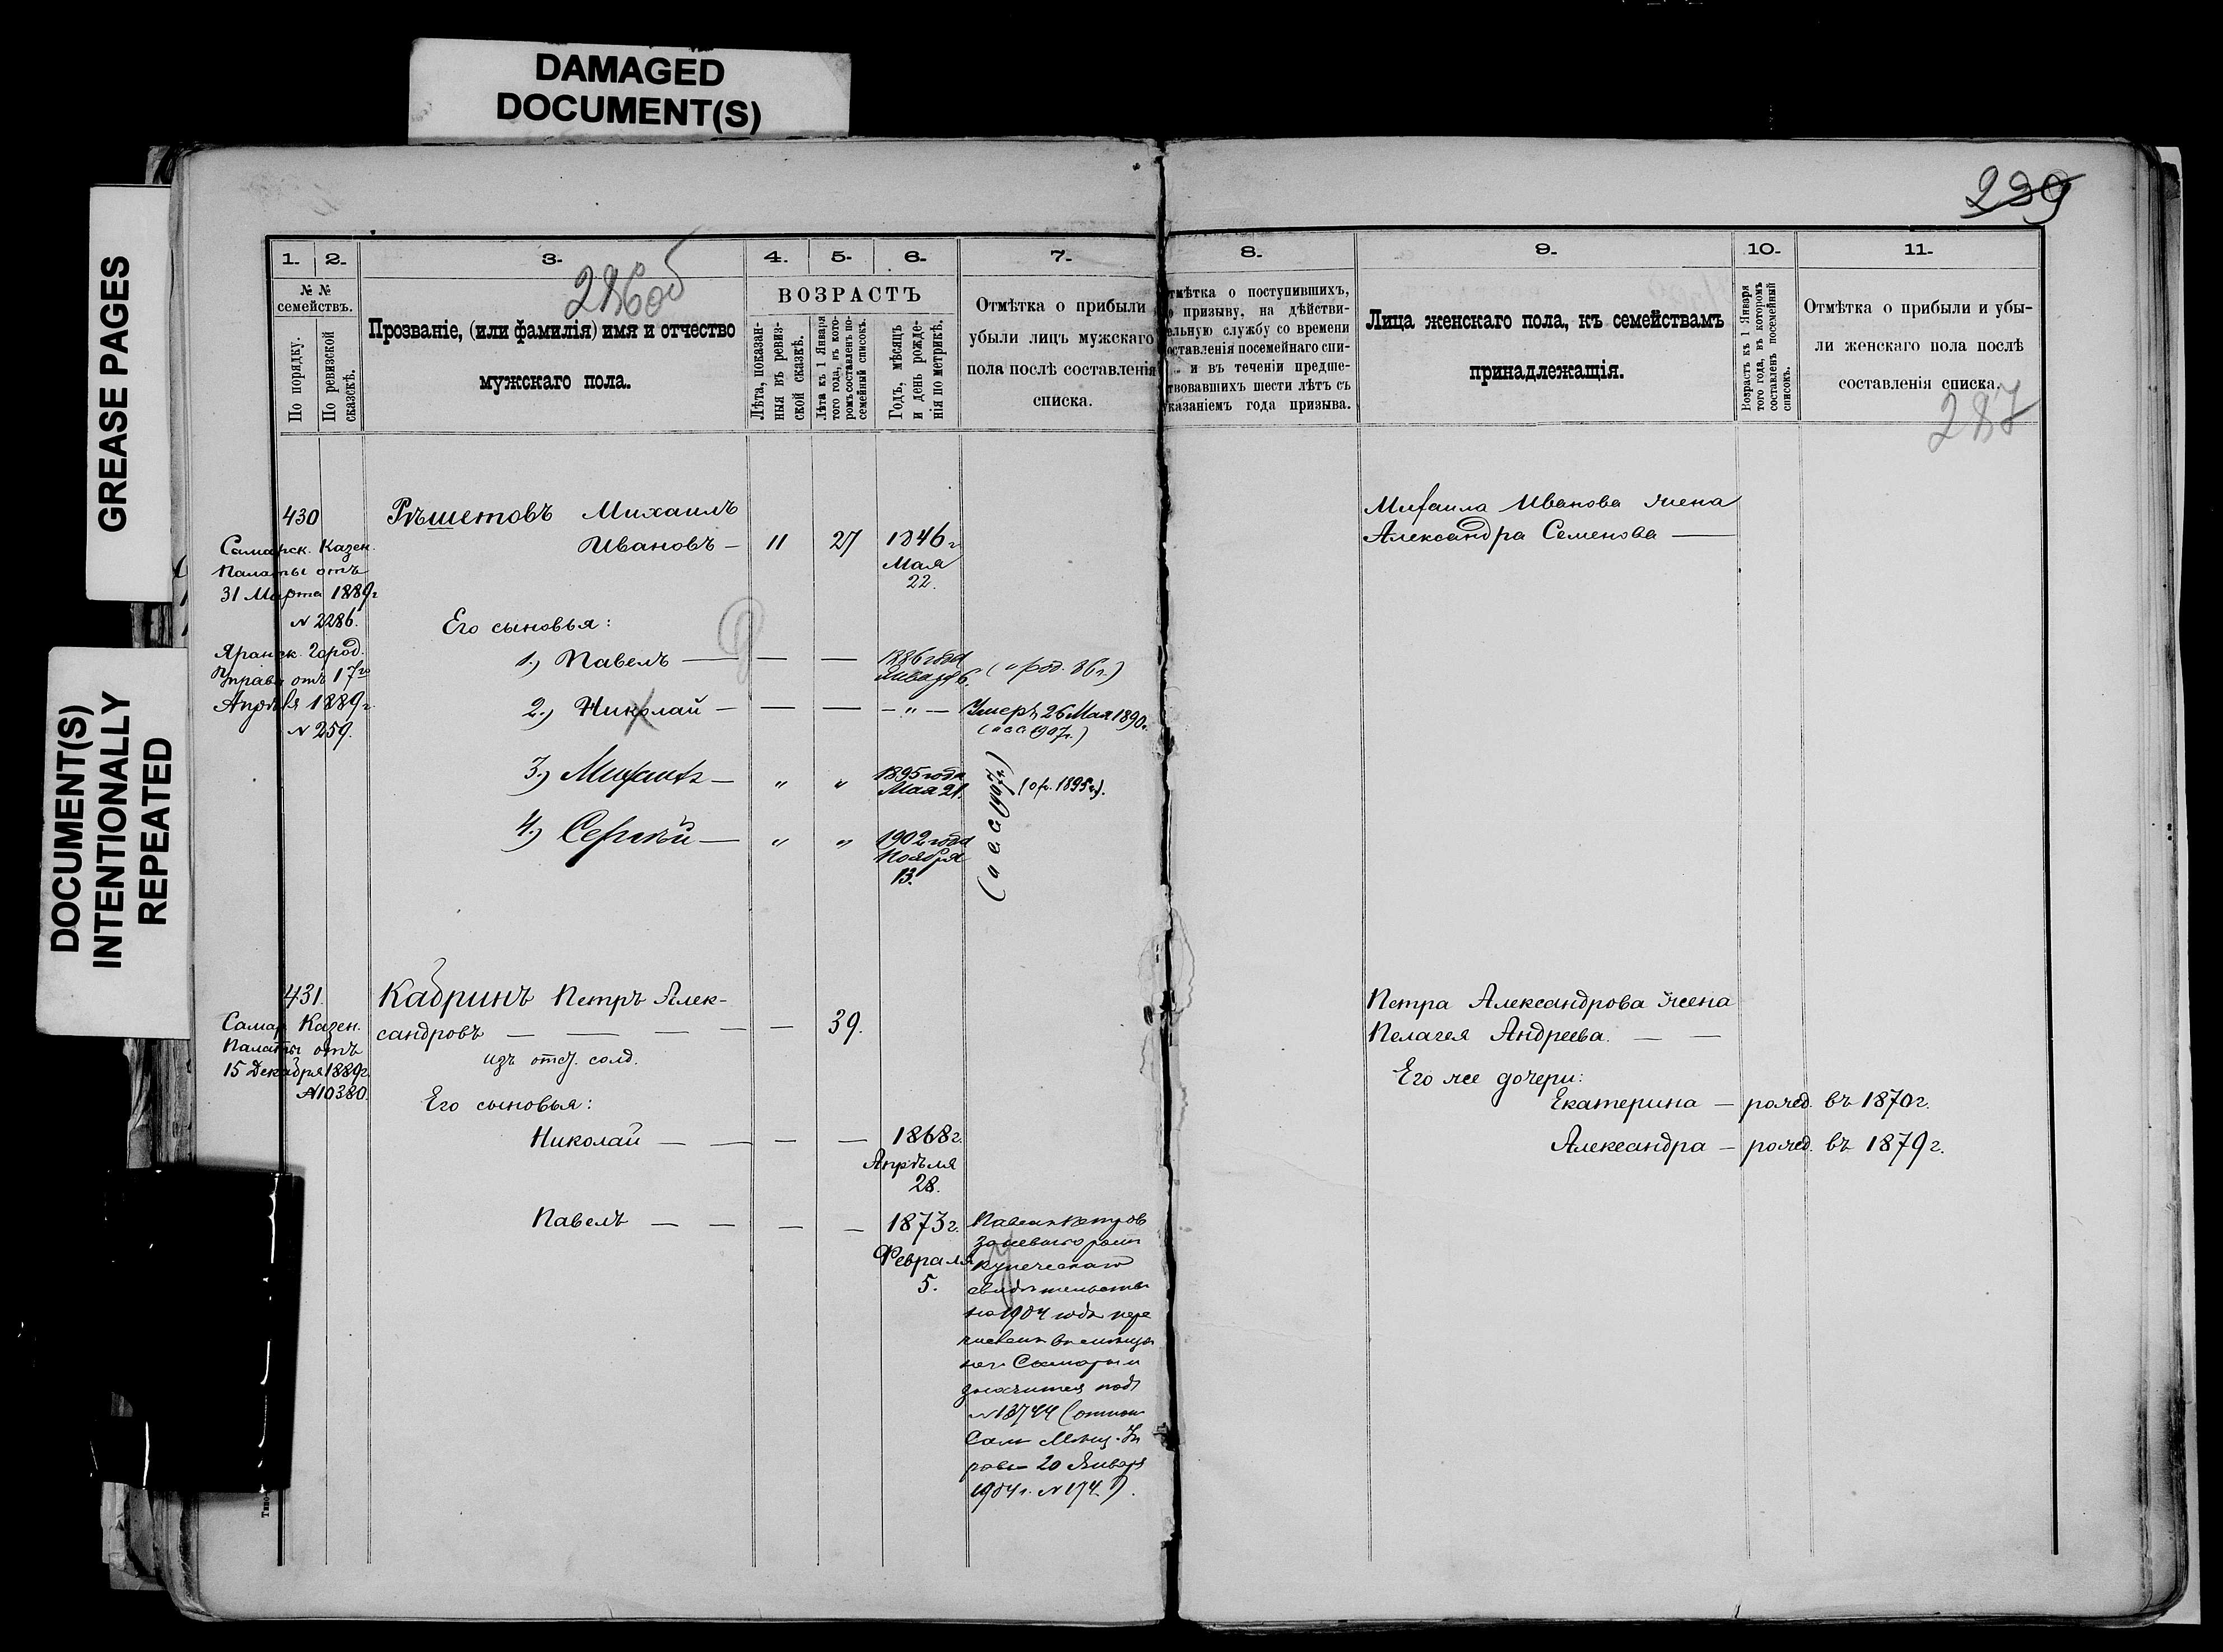 DAMAGED
DOCUMENT(S)
GREASE PAGES
DOCUMENT(S)
INTENTIONALLY
REPEATED
239
1. 2. 3. 4. 5. 6. 7.
286об
№ №
семействъ.
По порядку.
По ревизской
сказкѣ.
Прозваніе, (или фамилія) имя и отчество
мужскаго пола.
ВОЗРАСТЪ
Лѣта, показан-
ныя въ ревиз-
ской сказкѣ.
Лѣта къ 1 Января
того года, въ кото-
ромъ составленъ по-
семейный списокъ.
Годъ, мѣсяцъ
и день рожде-
нія по метрикѣ.
Отмѣтка о прибыли
убыли лицъ мужскаго
пола послѣ составленія
списка.
430
Самарск. Казен.
Палаты отъ
31 Марта 1889г
№ 2286.
Яранск. Город.
Управы отъ 17го
Апрѣля 1889г.
№ 259.
Рѣшетовъ Михаилъ
Ивановъ — 11 27 1846г
Мая
22.
Его сыновья:
1.) Павелъ — — — 1886 года
Января 6. ( род. 86г.)
2.) Николай — — — — " — Умеръ 26 Мая 1890г.
1907г.)
3.) Михаилъ — " " 1895 года
Мая 21. 1895г).
4.) Сергѣй — " " 1902 года
Ноября
13.
1907г)
431.
Самар. Казен.
Палаты отъ
15 Декабря 1889г.
№10380.
Кадринъ Петръ Алек-
сандровъ — — — — — 39.
изъ отст. солд.
Его сыновья:
Николай — — — — 1868г.
Апрѣля
28.
Павелъ — — — — 1873г.
Февраля
5.
Павелъ Петровъ
купеческаго
свидѣтельства
на 1904 годъ пере
численъ въ мѣщане
гор. Самары и
значится подъ
№13744
Сам. Мѣщ. Уп
равы 20 Января
1904г. №174.).
8. 9. 10. 11.
тмѣтка о поступившихъ,
о призыву, на дѣйстви-
ельную службу со времени
оставленія посемейнаго спи-
и въ теченіи предше-
твовавшихъ шести лѣтъ съ
указаніемъ года призыва.
Лица женскаго пола, къ семействамъ
принадлежащія.
Возрастъ къ 1 Января
того года, въ которомъ
составленъ посемейный
списокъ.
Отмѣтка о прибыли и убы-
ли женскаго пола послѣ
составленія списка.
287
Михаила Иванова жена
Александра Семенова —
Петра Александрова жена
Пелагея Андреева. — —
Его же дочери:
Екатерина — рожд. въ 1870г.
Александра — рожд. въ 1879г.